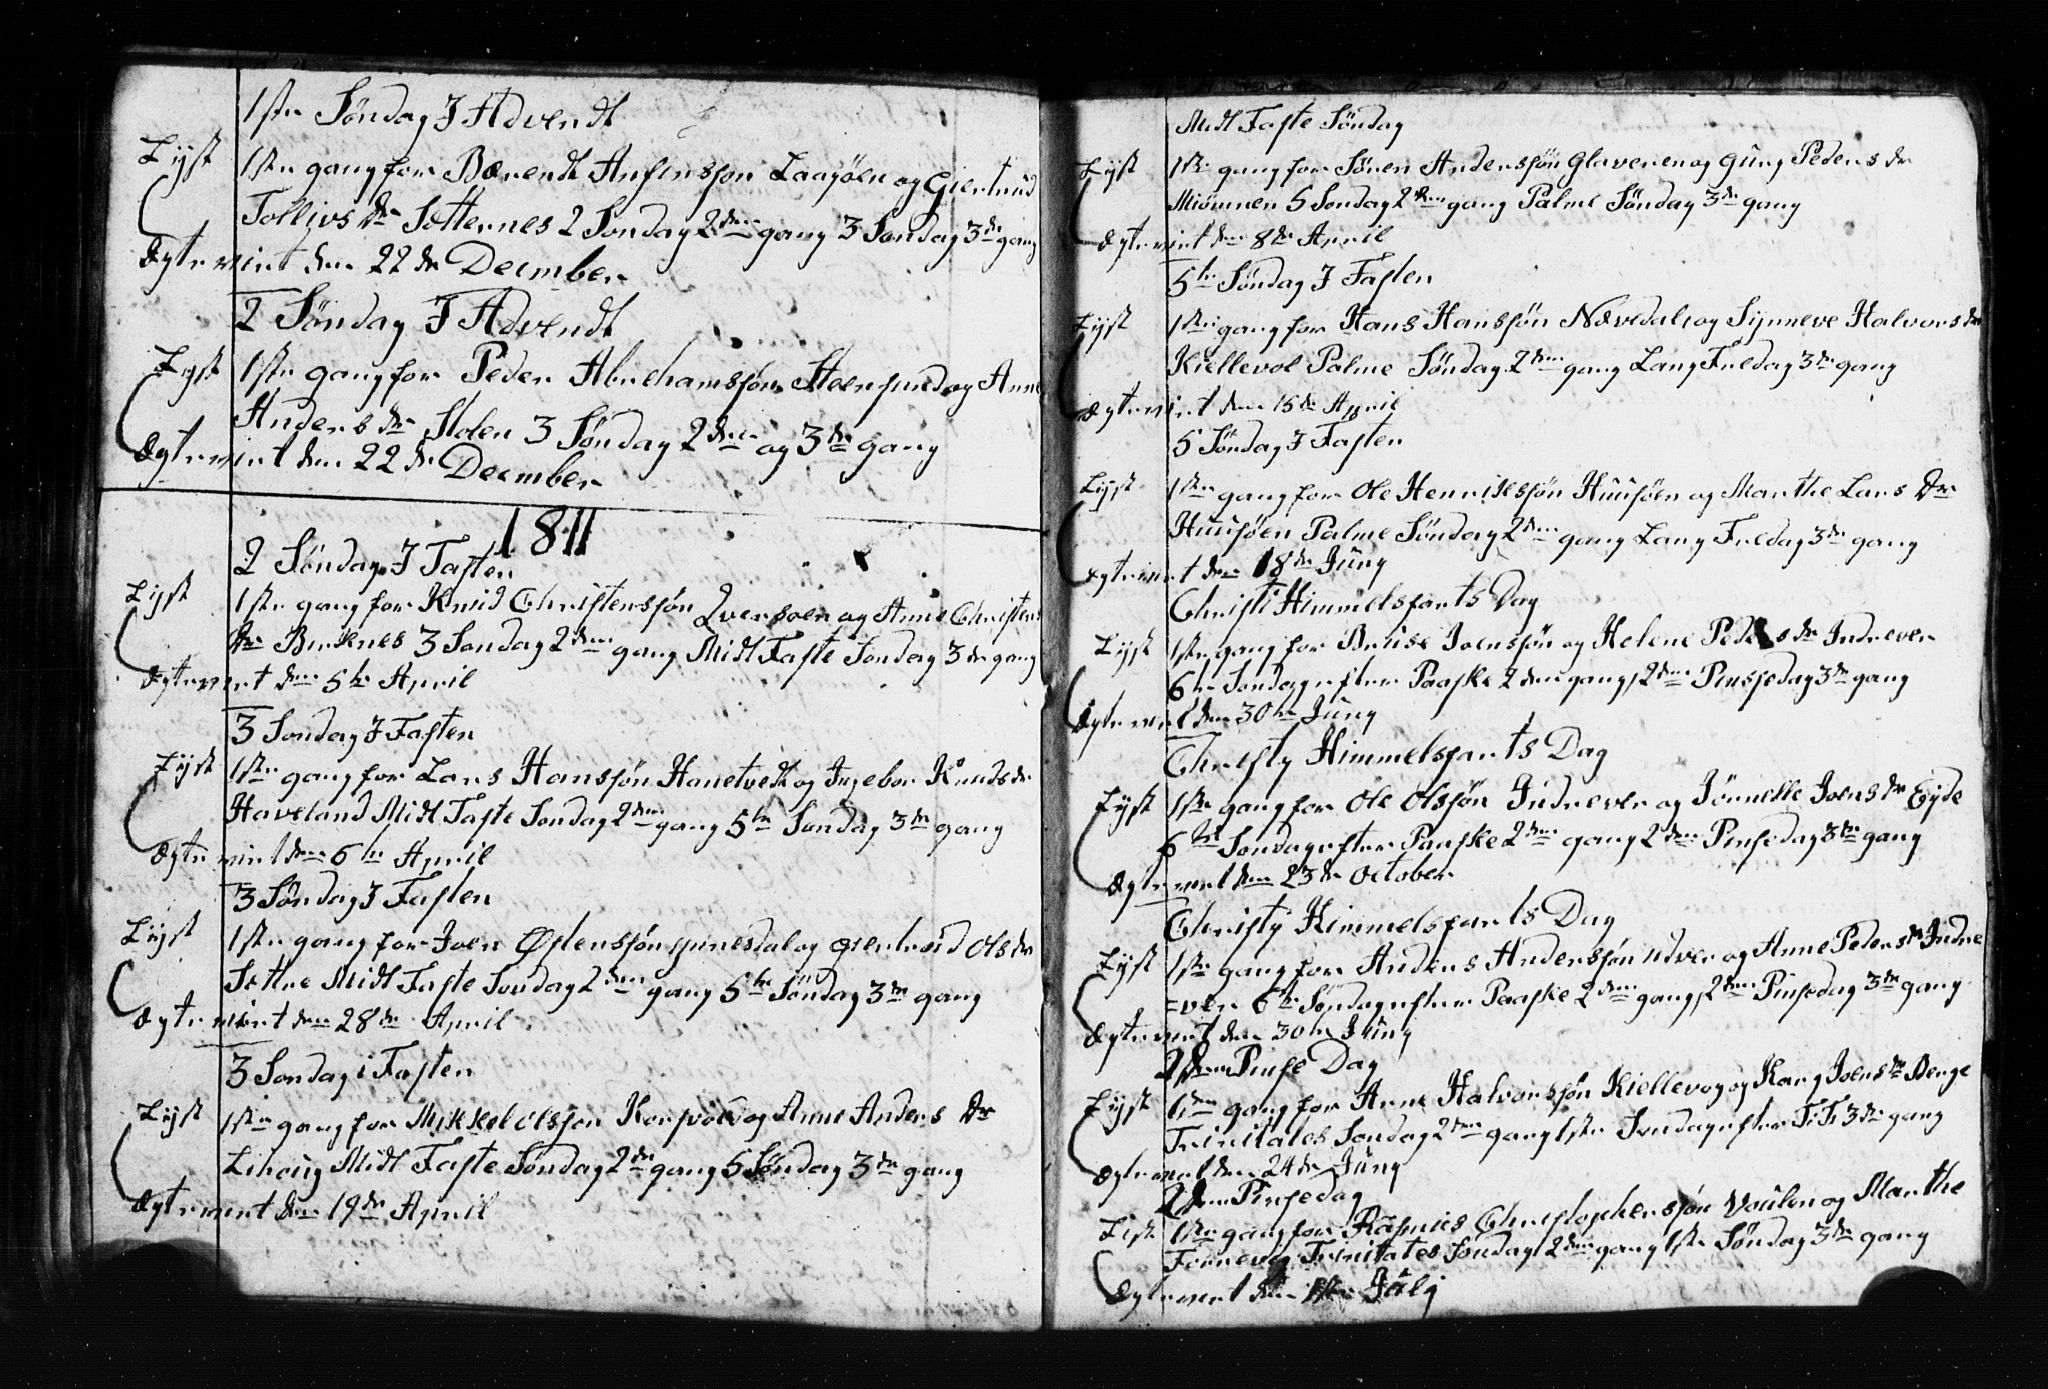 1ste Søndag J Advendt
Lyst 1ste gang for Bærendt Anfinssøn Laagøen og Giertrud
Tollivs dr Sotternes 2 Søndag 2den gang 3 Søndag 3de gang
Ægteviet den 22de December
2 Søndag J Advendt
Lyst 1ste gang for Peder Abrehamssøn Steensund og Anne
Anders dr Stolen 3 Søndag 2den og 3de gang
Ægteviet den 22de December
1811
2 Søndag J Fasten
Lyst 1ste gang for Knud Christenssøn og Anne Christens
dr Birkenes 3 Søndag 2den gang Midt Faste Søndag 3de gang
Ægteviet den 5te April
3 Søndag J Fasten
Lyst 1ste gang for Lars Hanssøn Hanetvedt og Ingebor Knuds dr
Haveland Midt Faste Søndag 2den gang 5te Søndag 3de gang
Ægteviet den 6te April
3 Søndag J Fasten
Lyst 1ste gang for Joen Østenssøn og Giertrud Ols dr
Sætre Midt Faste Søndag 2den gang 5te Søndag 3de gang
Ægteviet den 28de April
3 Søndag i Fasten
Lyst 1ste gang for Mikkel Olssøn og Anne Anders dr
Midt Faste Søndag 2den gang 5 Søndag 3de gang
Ægteviet den 19de April
Midt Faste Søndag
Lyst 1ste gang for Søren Anderssøn Glaveren og Guny Peders dr
Miømnen 5 Søndag 2den gang Palme Søndag 3de gang
Ægteviet den 8de April
5te Søndag J Fasten
Lyst 1ste gang for Hans Hanssøn Nævedal og Synneve Halvors dr
Kiellevol Palme Søndag 2den gang Lang Fredag 3de gang
Ægteviet den 15de April
5 Søndag J Fasten
Lyst 1ste gang for Ole Henrikssøn Huusøen og Marthe Lars dr
Huusøen Palme Søndag 2den gang Lang Fredag 3de gang
Ægteviet den 18de Juny
Christi Himmelsfarts Dag
Lyst 1ste gang for Bruse Joenssøn og Helene Peders dr Indrever
6te Søndag efter Paaske 2den gang, 2den Pinsedag 3de gang
Ægteviet den 30te Juny
Christy Himmelsfarts Dag
Lyst 1ste gang for Ole Olssøn Indrever og Jørnelle Joens dr Eyde
6te Søndag efter Paaske 2den gang 2den Pinsedag 3de gang
Ægteviet den 23de October
Christy Himmelsfarts Dag
Lyst 1ste gang for Anders Anderssøn Udver og Anne Peders dr Indre
=ver 6te Søndag efter Paaske 2den gang, 2den Pinsedag 3de gang
Ægteviet den 30te Juny
2den Pinse Dag
Lyst gang for Arne Halvorssøn Kiellevog og Kary Joens dr Berge
Trinitates Søndag 2den gang 1ste Søndag efter 3de gang
Ægteviet den 24de Juny
2den Pinsedag
Lyst 1ste gang for Rasmus Christopherssøn Voulen og Marthe
Fornevig Trinitates Søndag 2den gang 1ste Søndag 3de gang
Ægteviet den 1ste July